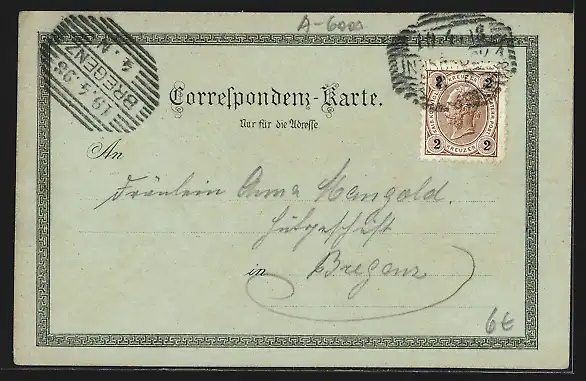 A-6000
BREGENZ
19.4.98
4.N
Correspondenz-Karte.
Nur für die Adresse
2 KREUZER 2
2 KREUZER 2
An
Fräulein Anna Mangold.
Hutgeschäft
in Bregenz
6€